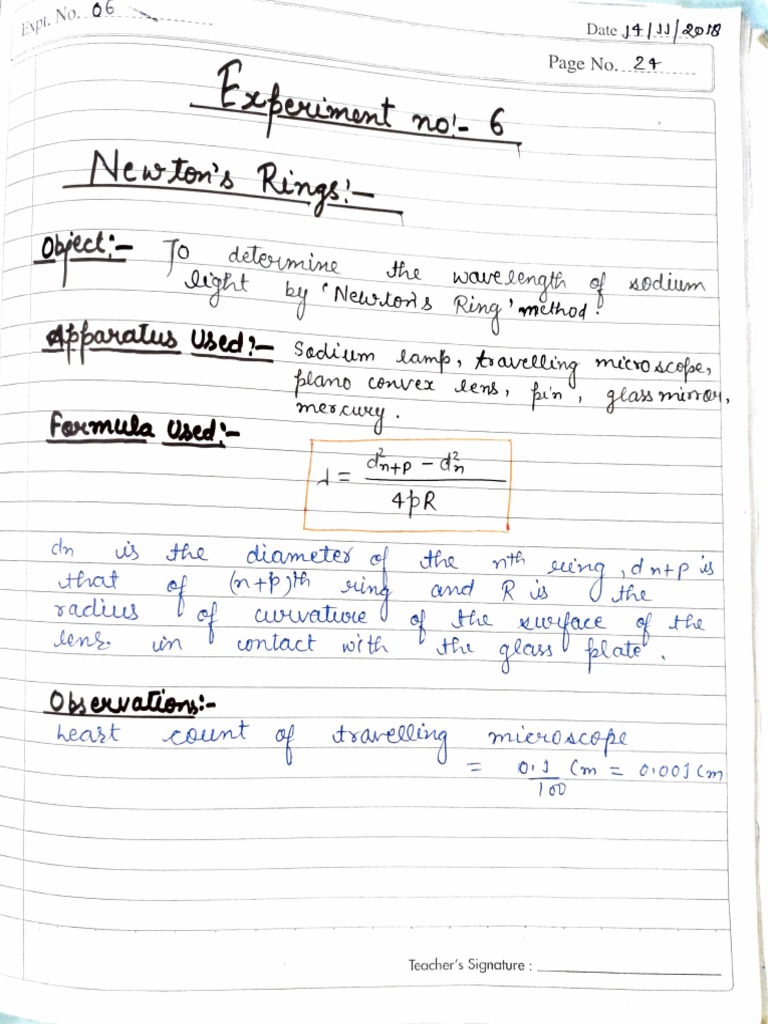 Expt. No. 06
Date 14/11/2018
Page No. 24
Experiment no:- 6
Newton's Rings:-
Object:- To determine the wavelength of sodium
light by 'Newton's Ring' method.
Apparatus Used:- Sodium lamp, travelling microscope,
plano convex lens, pin, glass mirror,
mercury.
Formula Used:-
λ = (d²n+p − d²n) / 4pR
dn is the diameter of the nth ring, dn+p is
that of (n+p)th ring and R is the
radius of curvature of the surface of the
lens in contact with the glass plate.
Observations:-
Least count of travelling microscope
= 0.1/100 cm = 0.001 cm
Teacher's Signature :